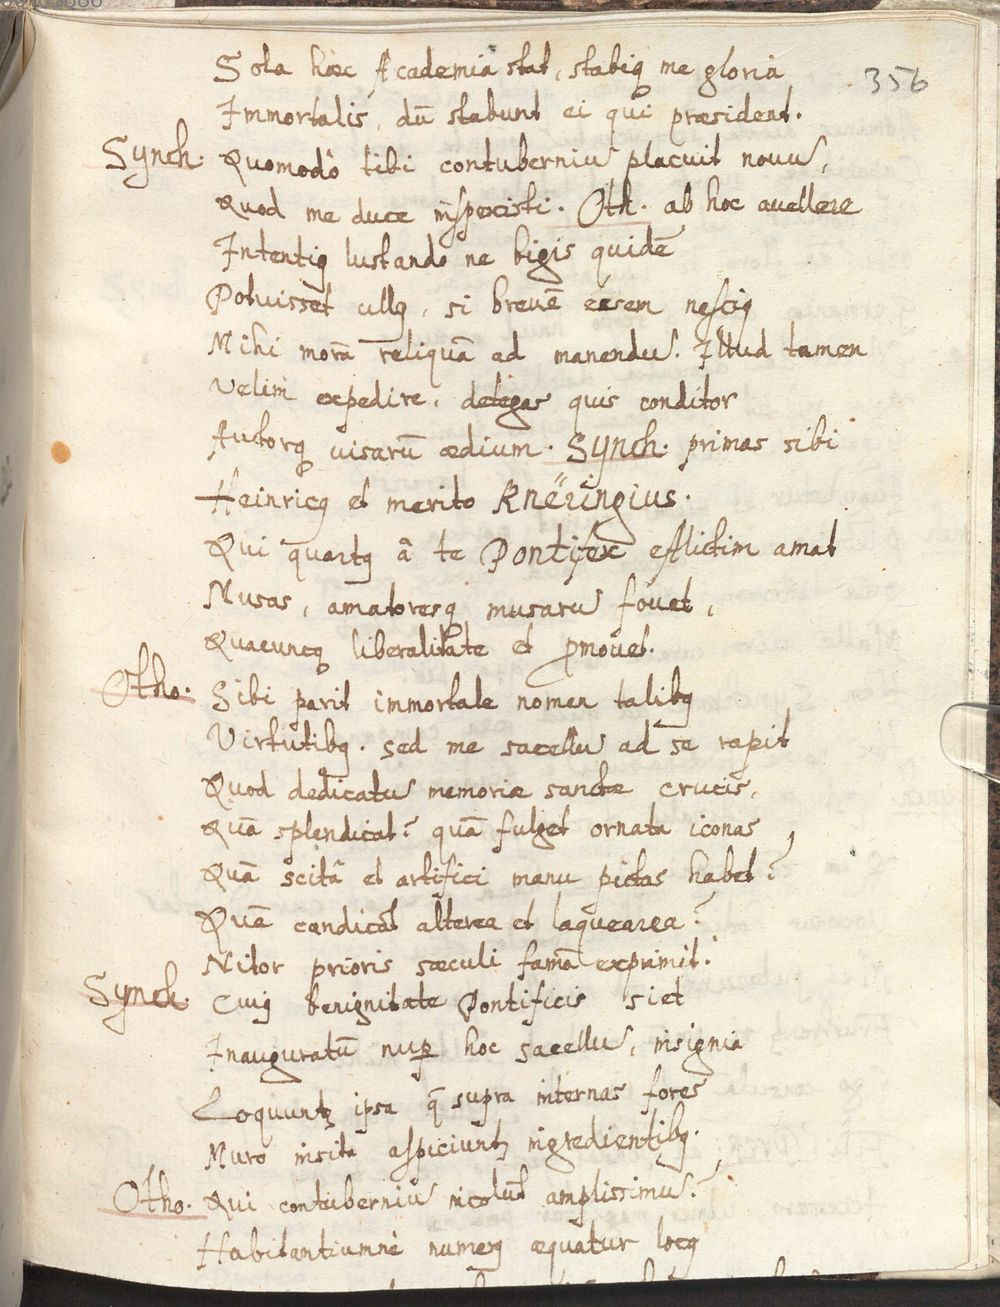 Sola hæc Academia stat, stabitq́ me gloria
356
Immortalis, dū stabunt ei qui præsident.
Synch. Quomodo tibi contuberniū placuit nouū,
Quod me duce inspexisti. Oth. ab hoc auellere
Intentiq lustando ne bigis quidē
Potuisset ullq, si breuē eesem nesciq
Mihi morā reliquā ad manendū. Illud tamen
Velim expedire, detegas quis conditor
Autorq́ uisarū ædium. Synch. primas sibi
Heinricq et merito Knëringius.
Qui quartq â te Pontifex efflictim amat
Musas, amatoresq́ musarū fouet,
Quacuncq́ liberalitate et pmouet.
Otho. Sibi parit immortale nomen talibq
Virtutibq. sed me sacellū ad se rapit
Quod dedicatū memoriæ sanctæ crucis,
Quā splendicat? quā fulget ornata iconas,
Quā scitā et artifici manu pictas habet?
Quā candicat alterea et laquearea?
Nitor prioris sæculi famā exprimit.
Synch. Cuiq benignitate Pontificis siet
Inauguratū nup hoc sacellū, insignia
Loquuntq ipsa q̄ supra internas fores
Muro insita aspiciuntq ingredientibq.
Otho. Qui contuberniū incolūt amplissimū?
Habitantiumnè numerq æquatur locq